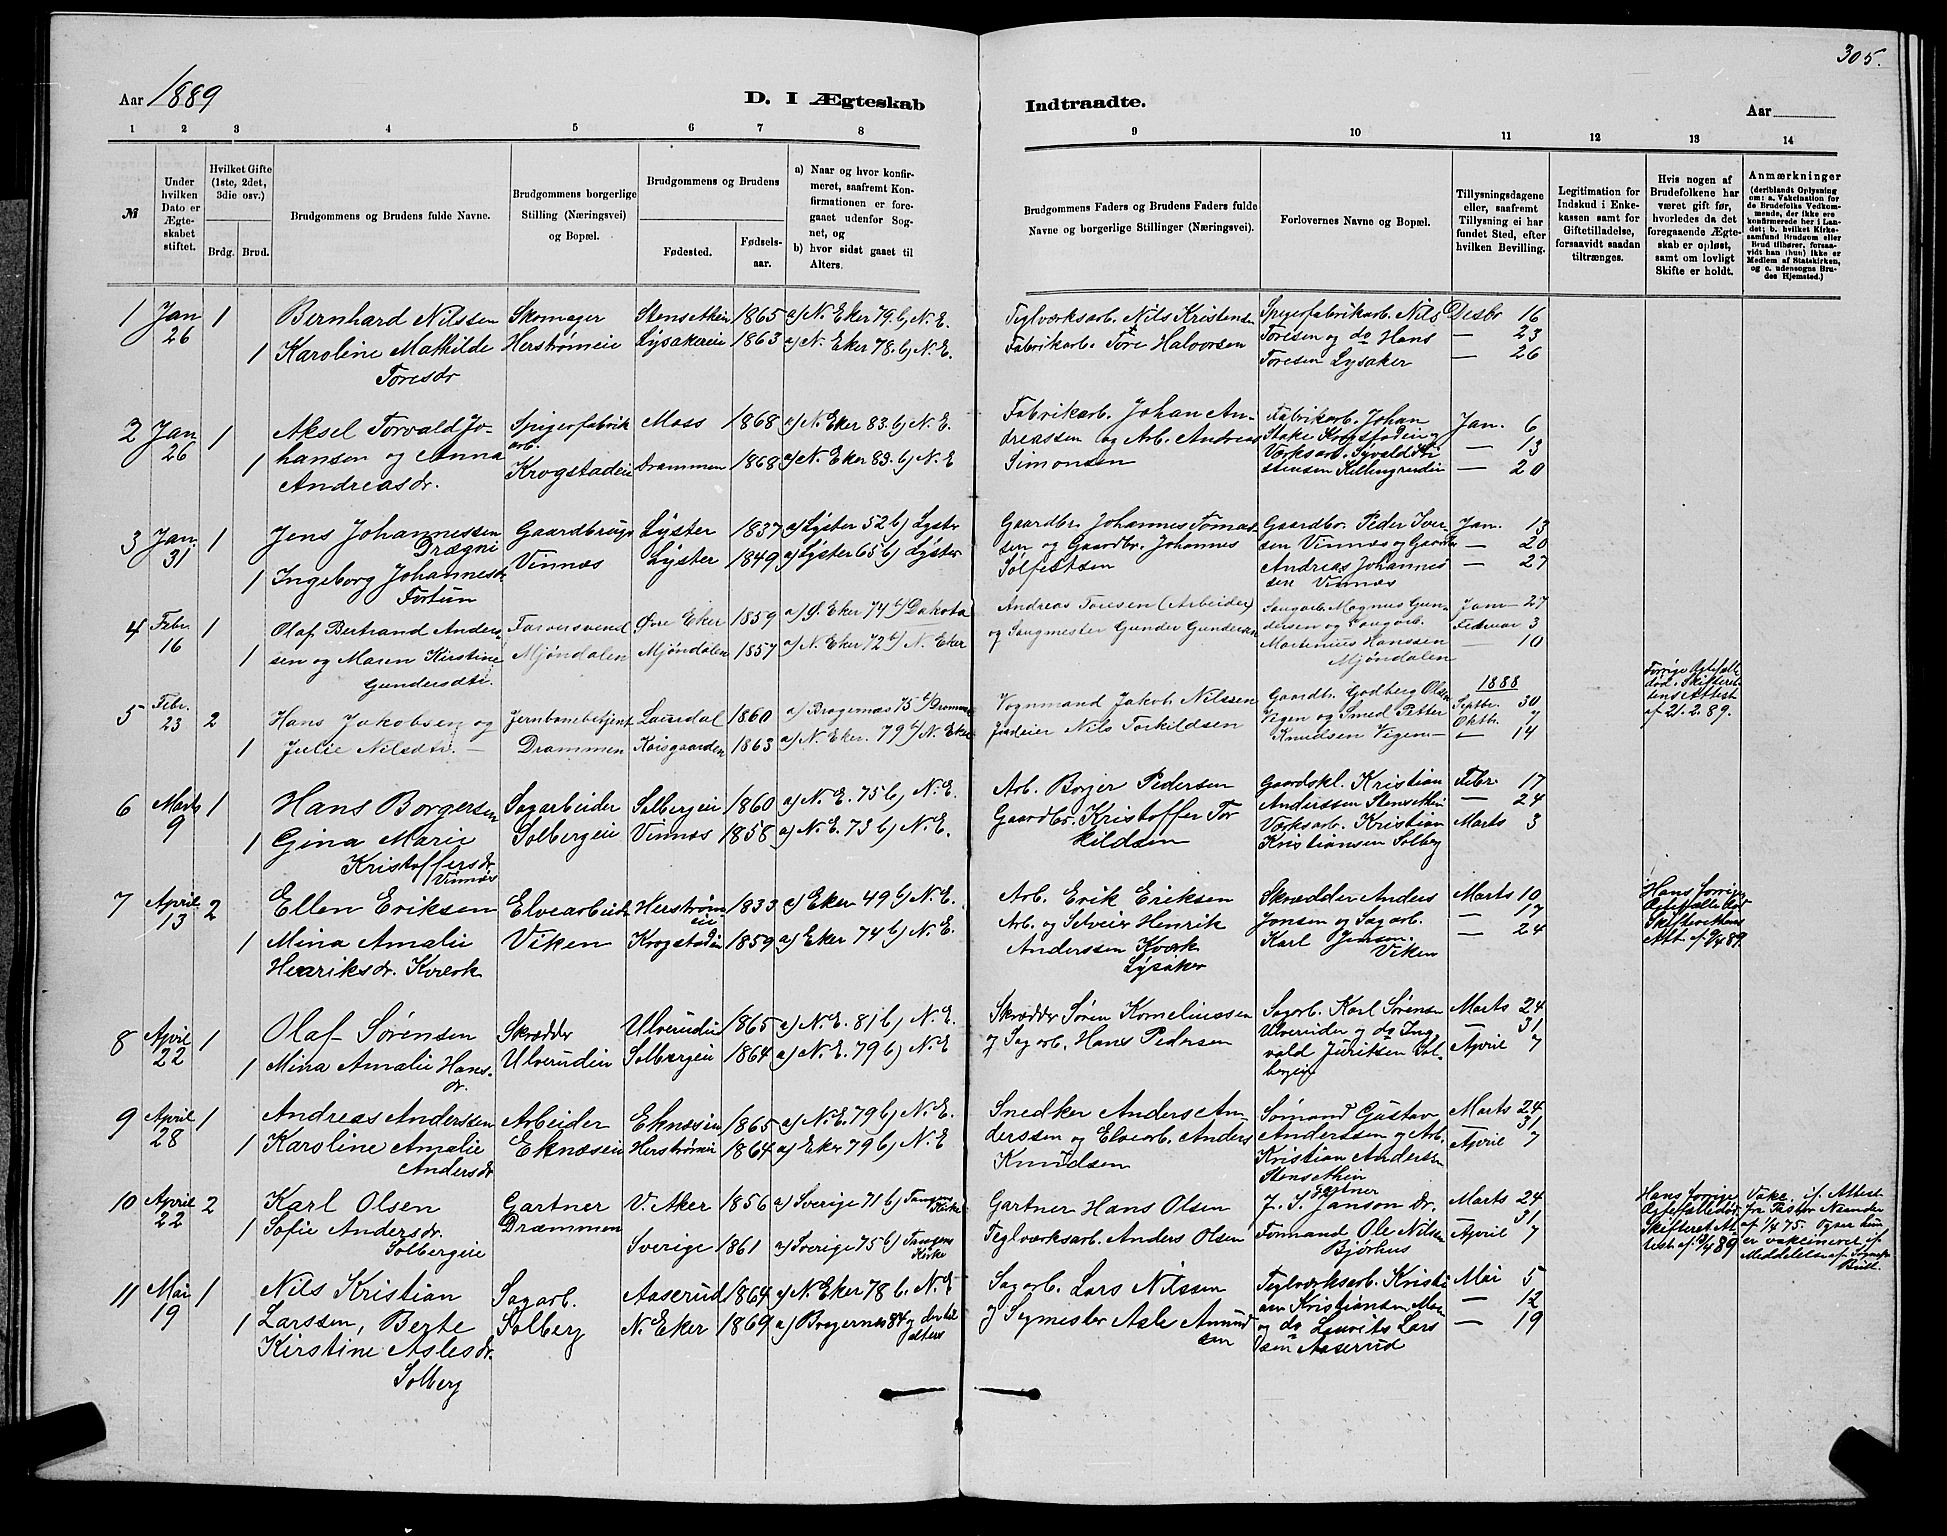 305.
Aar 1889
D. I Ægteskab
Indtraadte.
Aar
1 2 3 4 5 6 7 8
9 10 11 12 13 14
№
Under hvilken Dato er Ægteskabet stiftet.
Hvilket Gifte (1ste, 2det, 3die osv.)
Brdg. Brud.
Brudgommens og Brudens fulde Navne.
Brudgommens borgerlige Stilling (Næringsvei) og Bopæl.
Brudgommens og Brudens
Fødested.
Fødsels-aar.
a) Naar og hvor konfirmeret, saafremt Konfirmationen er foregaaet udenfor Sognet, og
b) hvor sidst gaaet til Alters.
Brudgommens Faders og Brudens Faders fulde Navne og borgerlige Stillinger (Næringsvei).
Forlovernes Navne og Bopæl.
Tillysningsdagene eller, saafremt Tillysning ei har fundet Sted, efter hvilken Bevilling.
Legitimation for Indskud i Enkekassen samt for Giftetilladelse, forsaavidt saadan tiltrænges.
Hvis nogen af Brudefolkene har været gift før, hvorledes da det foregaaende Ægteskab er opløst, samt om lovligt Skifte er holdt.
Anmærkninger (deriblandt Oplysning om: a. Vakcination for de Brudefolks Vedkommende, der ikke ere konfirmerede her i Landet; b. hvilket Kirkesamfund Brudgom eller Brud tilhører, forsaavidt han (hun) ikke er Medlem af Statskirken, og c. udensogns Brudes Hjemsted.)
1 Jan 26 1 Bernhard Nilssen Skomager Stensethein 1865 a) N. Eker 79. b) N. E.
1 Karoline Mathilde Toresdr Herstrømeie Lysakereie 1863 a) N. Eker 78. b) N. E.
Teglværksarb. Nils Kristensen
Fabrikarb. Tore Halvorsen
Spigerfabrikarb. Nils
Toresen og do Hans
Toresen Lysaker
Desbr 16
— 23
— 26
2 Jan 26 1 Aksel Torvald Jo- Spigerfabrik Moss 1868 a) N. Eker 83. b) N. E.
arb.
1 hansen og Anna Krogstadeie Drammen 1868 a) N. Eker 83. b) N. E
Andreasdr.
Fabrikarb. Johan An-
dreassen og Arb. Andreas
Simonsen
Fabrikarb. Johan
Stake Krogstadeie og
Værksarb. Syvald Kri
stensen Killingrudei
Jan. 6
— 13
— 20
3 Jan 31 1 Jens Johannessen Drægni Gaardbruger Lyster 1837 a) Lyster 52 b) Lyster
1 Ingeborg Johannesdr Fortun Vinnæs Lyster 1849 a) Lyster 65 b) Lyster
Gaardbr. Johannes Tomas
sen og Gaardbr. Johannes
Solfestsen
Gaardbr Peder Iver-
sen Vinnæs og Gaardbr
Andreas Johannes
sen Vinnæs
Jan. 13
— 20
— 27
4 Febr. 16 1 Olaf Bertrand Anders Farversvend Øvre Eker 1859 a) Ø. Eker 74 b) Dakota
1 sen og Maren Kirstine Mjøndalen Mjøndalen 1857 a) N. Eker 72 b) N. Eker
Gundersdtr.
Andreas Toresen (Arbeider)
og Saugmester Gunder Gundersen
Saugarb. Magnus Gun-
dersen og Saugarb.
Martinius Hanssen
Mjøndalen
Jan— 27
Februar 3
— 10
5 Febr. 23 2 Hans Jakobsen og Jernbanebetjent Laurdal 1860 a) Bragernæs 75 b) Drammen
1 Julie Nilsdtr. — Drammen Korsgaarden 1863 a) N. Eker. 79 b) N. Eker
Vognmand Jakob Nilssen
Nils Torkildsen
Gaardbr. Godberg Olsen
Vigen og Smed Petter
Knudsen Vigen—
1888
Septbr. 30
Oktbr. 7
— 14
Forrige Ægtefælle
død. Skifteret-
tens Attest
af 21. 2. 89.
6 Marts 9 1 Hans Borgersen Sagarbeider Solbergeie 1860 a) N. E. 75 b) N. E.
1 Gina Marie Solbergeie Vinnæs 1858 a) N. E. 73 b) N. E.
Kristoffersdr
Vinnæs
Arb. Borger Pedersen
Gaardbr. Kristoffer Tor
kildsen
Gaardskl. Kristian
Anderssen Stensethein
Værksarb. Kristian
Kristiansen Solberg
Febr 17
— 24
Marts 3
7 April 13 2 Ellen Eriksen Elvearbeider Herstrøm eie 1833 a) Eker 49 b) N. E.
1 Mina Amalie Viken Krogstadeie 1859 a) Eker 74 b) N. E.
Henriksdr. Kværk
Arb. Erik Eriksen
Arb. og Selveier Henrik
Anderssen Kværk
Lysaker
Skrædder Anders
Jonsen og Sagarb.
Karl Jensen
Viken
Marts 10
— 17
— 24
Hans forrige
Ægtefælle død
Skifterettens
Att. af 9/4 89.
8 April 22 1 Olaf Sørensen Skrædder Ulverudeie 1865 a) N. E. 81 b) N. E.
1 Mina Amalie Hans- Ulverudeie Solbergeie 1864 a) N. E. 79 b) N. E
dr.
Skrædder Søren Korneliussen
og Sagarb. Hans Pedersen
Sagarb. Karl Sørensen
Ulverudeie og do Ing
vald Juritsen Sol-
bergeie
Marts 24
— 31
April 7
9 April 28 1 Andreas Anderssen Arbeider Eknæseie 1865 a) N. E. 79 b) N. E.
1 Karoline Amalie Eknæseie Herstrømeie 1864 a) Eker 79 b) N. E
Andersdr
Snedker Anders An-
derssen og Elvearb. Anders
Knudsen
Sømand Gustav
Anderssen og Arb.
Kristian Anderssen
Stensethein
Marts 24
— 31
April 7
10 April 22 2 Karl Olsen Gartner V. Aker 1856 a) Sverige 71 b) Tangens Kirke
1 Sofie Andersdr. Drammen Sverige 1861 a) Sverige 75 b) Tangens Kirke
Solbergeie
Gartner Hans Olsen
Teglværksarb. Anders Olsen
Gartner
J. S. Janson Dr.
Formand Ole Nilsen
Bjørhus
Marts 24
— 31
April 7
Hans forrige
Ægtefælle død.
Skifteret. At
test af 13/4 89
Vakc. if. Attest
fra Pastor Neander
af 1/4 75. Ogsaa hun
er vakcineret if.
Meddelelse af Sognepr.
11 Mai 19 1 Nils Kristian Sagarb. Aaserud 1864 a) N. Eker 78 b. N. E
1 Larssen, Berte Solberg N. Eker 1869 a) Bragernæs 84 og der til
Alters
Kirstine Aslesdr.
Solberg
Sagarb. Lars Nilssen
og Sagmester Asle Amund
sen
Teglværksarb. Kristi
an Kristiansen
og do Lauritz Lars
sen Aaserud
Mai 5
— 12
— 19